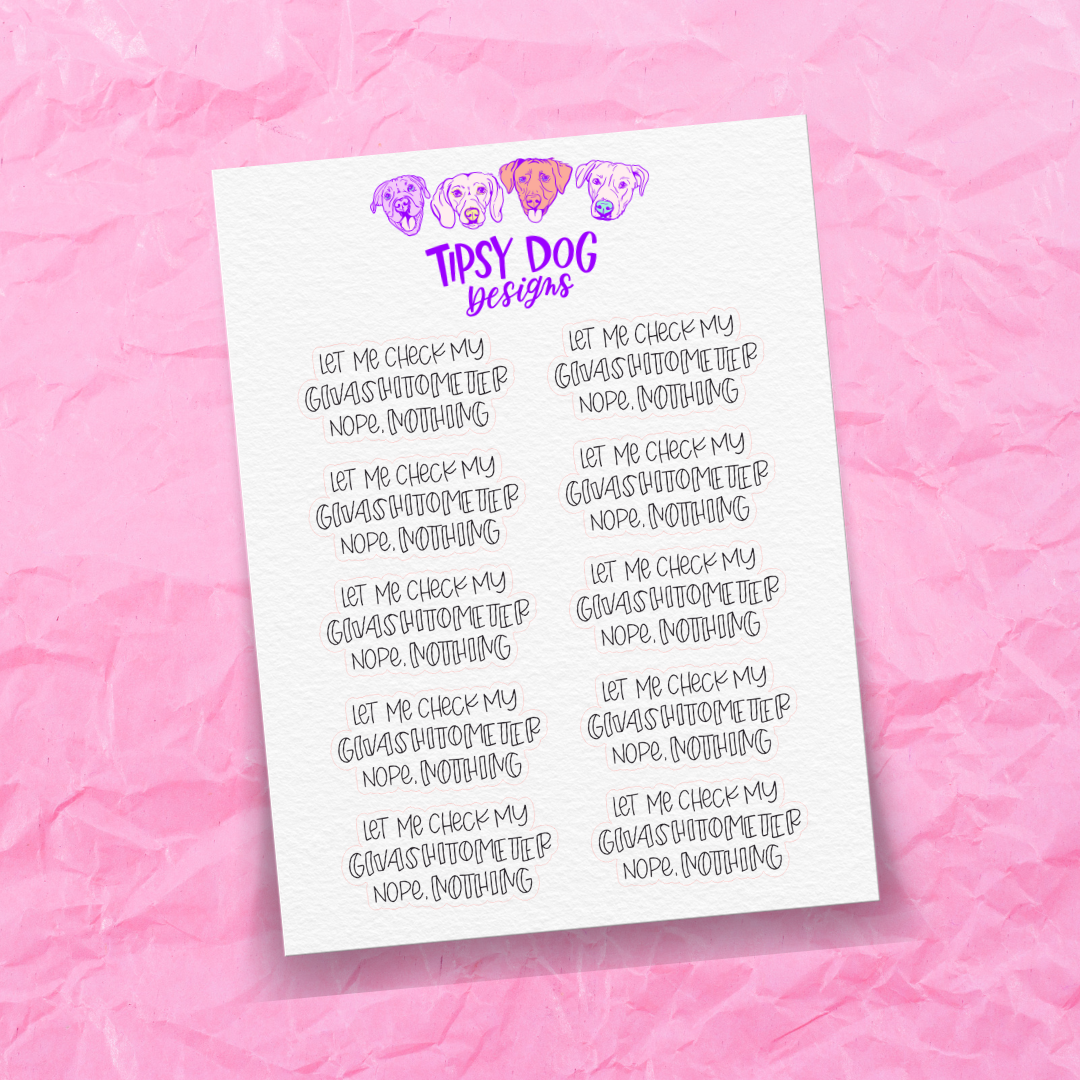 TIPSY DOG
Designs
LET ME CHECK MY
GIVASHITOMETER
NOPE, NOTHING
LET ME CHECK MY
GIVASHITOMETER
NOPE, NOTHING
LET ME CHECK MY
GIVASHITOMETER
NOPE, NOTHING
LET ME CHECK MY
GIVASHITOMETER
NOPE, NOTHING
LET ME CHECK MY
GIVASHITOMETER
NOPE, NOTHING
LET ME CHECK MY
GIVASHITOMETER
NOPE, NOTHING
LET ME CHECK MY
GIVASHITOMETER
NOPE, NOTHING
LET ME CHECK MY
GIVASHITOMETER
NOPE, NOTHING
LET ME CHECK MY
GIVASHITOMETER
NOPE, NOTHING
LET ME CHECK MY
GIVASHITOMETER
NOPE, NOTHING